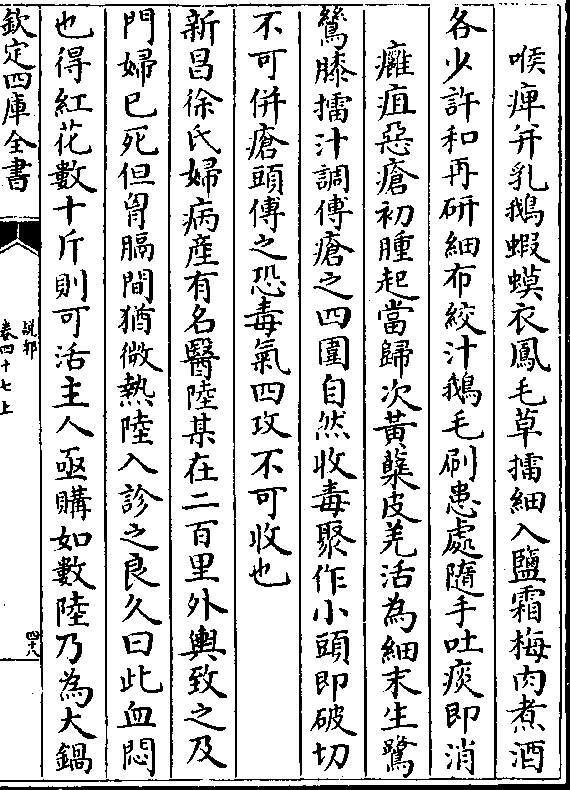 喉痺并乳鵝蝦蟆衣鳳毛草擂細入鹽霜梅肉煮酒
各少許和再研細布絞汁鵝毛刷患處隨手吐痰即消
癰疽惡瘡初腫起當歸次黃蘗皮羌活為細末生鷺
鷥膝擂汁調傅瘡之四圍自然收毒聚作小頭即破切
不可併瘡頭傅之恐毒氣四攻不可收也
新昌徐氏婦病產有名醫陸某在二百里外輿致之及
門婦已死但胷膈間猶微熱陸入診之良久曰此血悶
也得紅花數十斤則可活主人亟購如數陸乃為大鍋
欽定四庫全書
說郛
卷四十七上